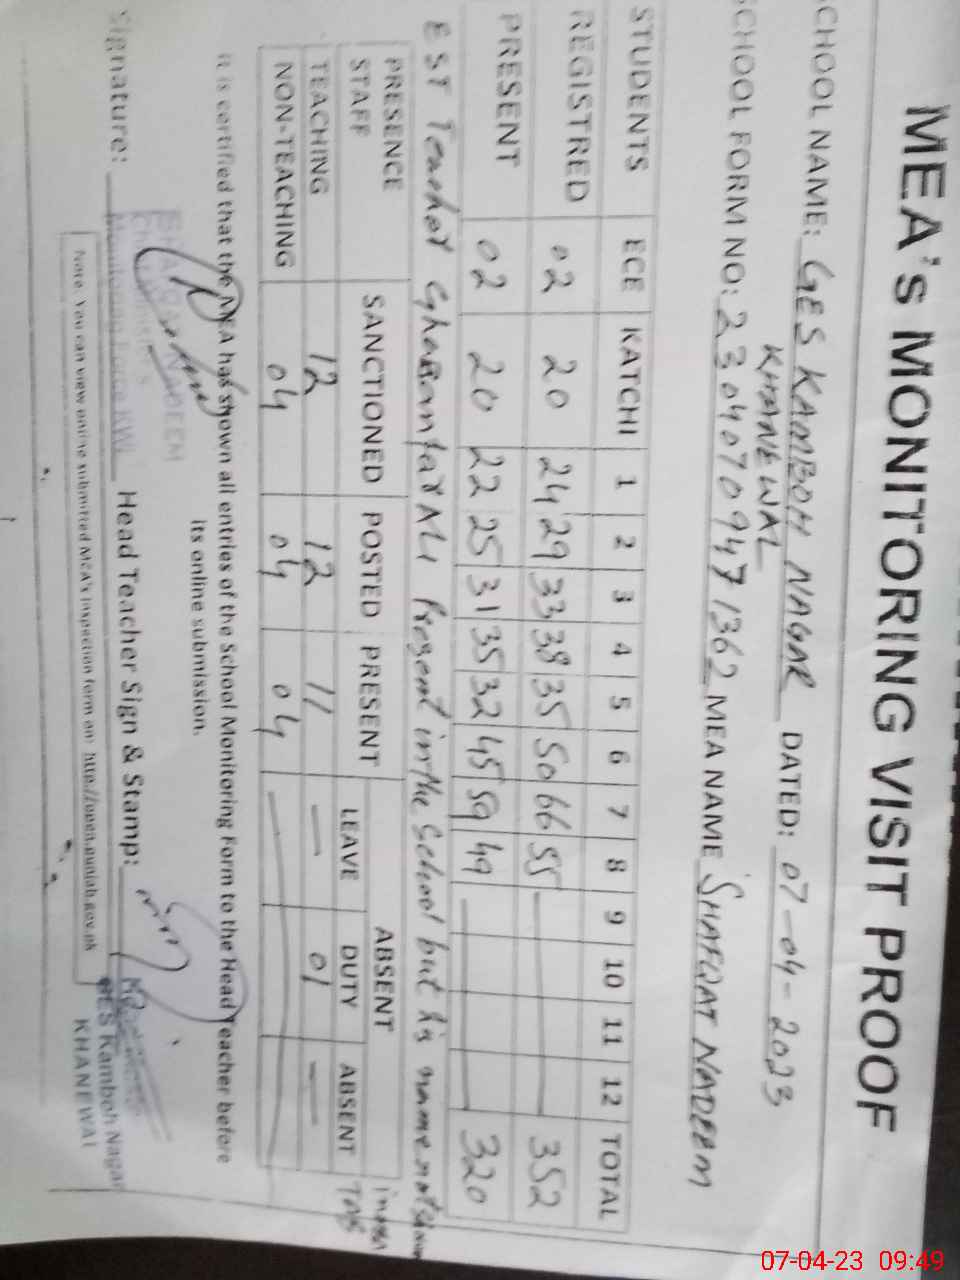 MEA's MONITORING VISIT PROOF
CHOOL NAME: GES KAMBOH NAGAR DATED: 07-04-2023
KHANEWAL
CHOOL FORM NO: 23040709471362 MEA NAME SHAFQAT NADEEM
STUDENTS ECE KATCHI 1 2 3 4 5 6 7 8 9 10 11 12 TOTAL
REGISTRED 02 20 24 29 33 38 35 50 66 55 352
PRESENT 02 20 22 25 31 35 32 45 59 49 320
EST Teacher Ghazanfar Ali Present in the School but his name not shown
in MEA TAB
PRESENCE STAFF SANCTIONED POSTED PRESENT ABSENT
LEAVE DUTY ABSENT
TEACHING 12 12 11 — 01 —
NON-TEACHING 04 04 04
It is certified that the MEA has shown all entries of the School Monitoring Form to the Head Teacher before
its online submission.
Signature: Head Teacher Sign & Stamp:
NADEEM
GES Kamboh Nagar
KHANEWAL
Note. You can view online submitted MEA's inspection form on: http://open.punjab.gov.pk
07-04-23 09:49